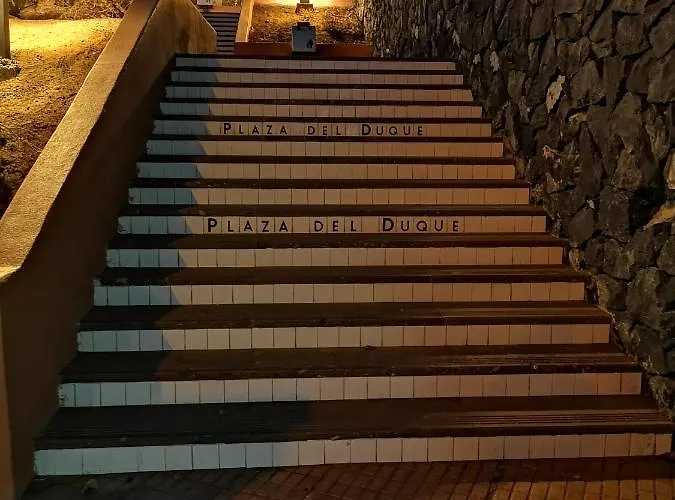 Plaza del Duque
Plaza del Duque